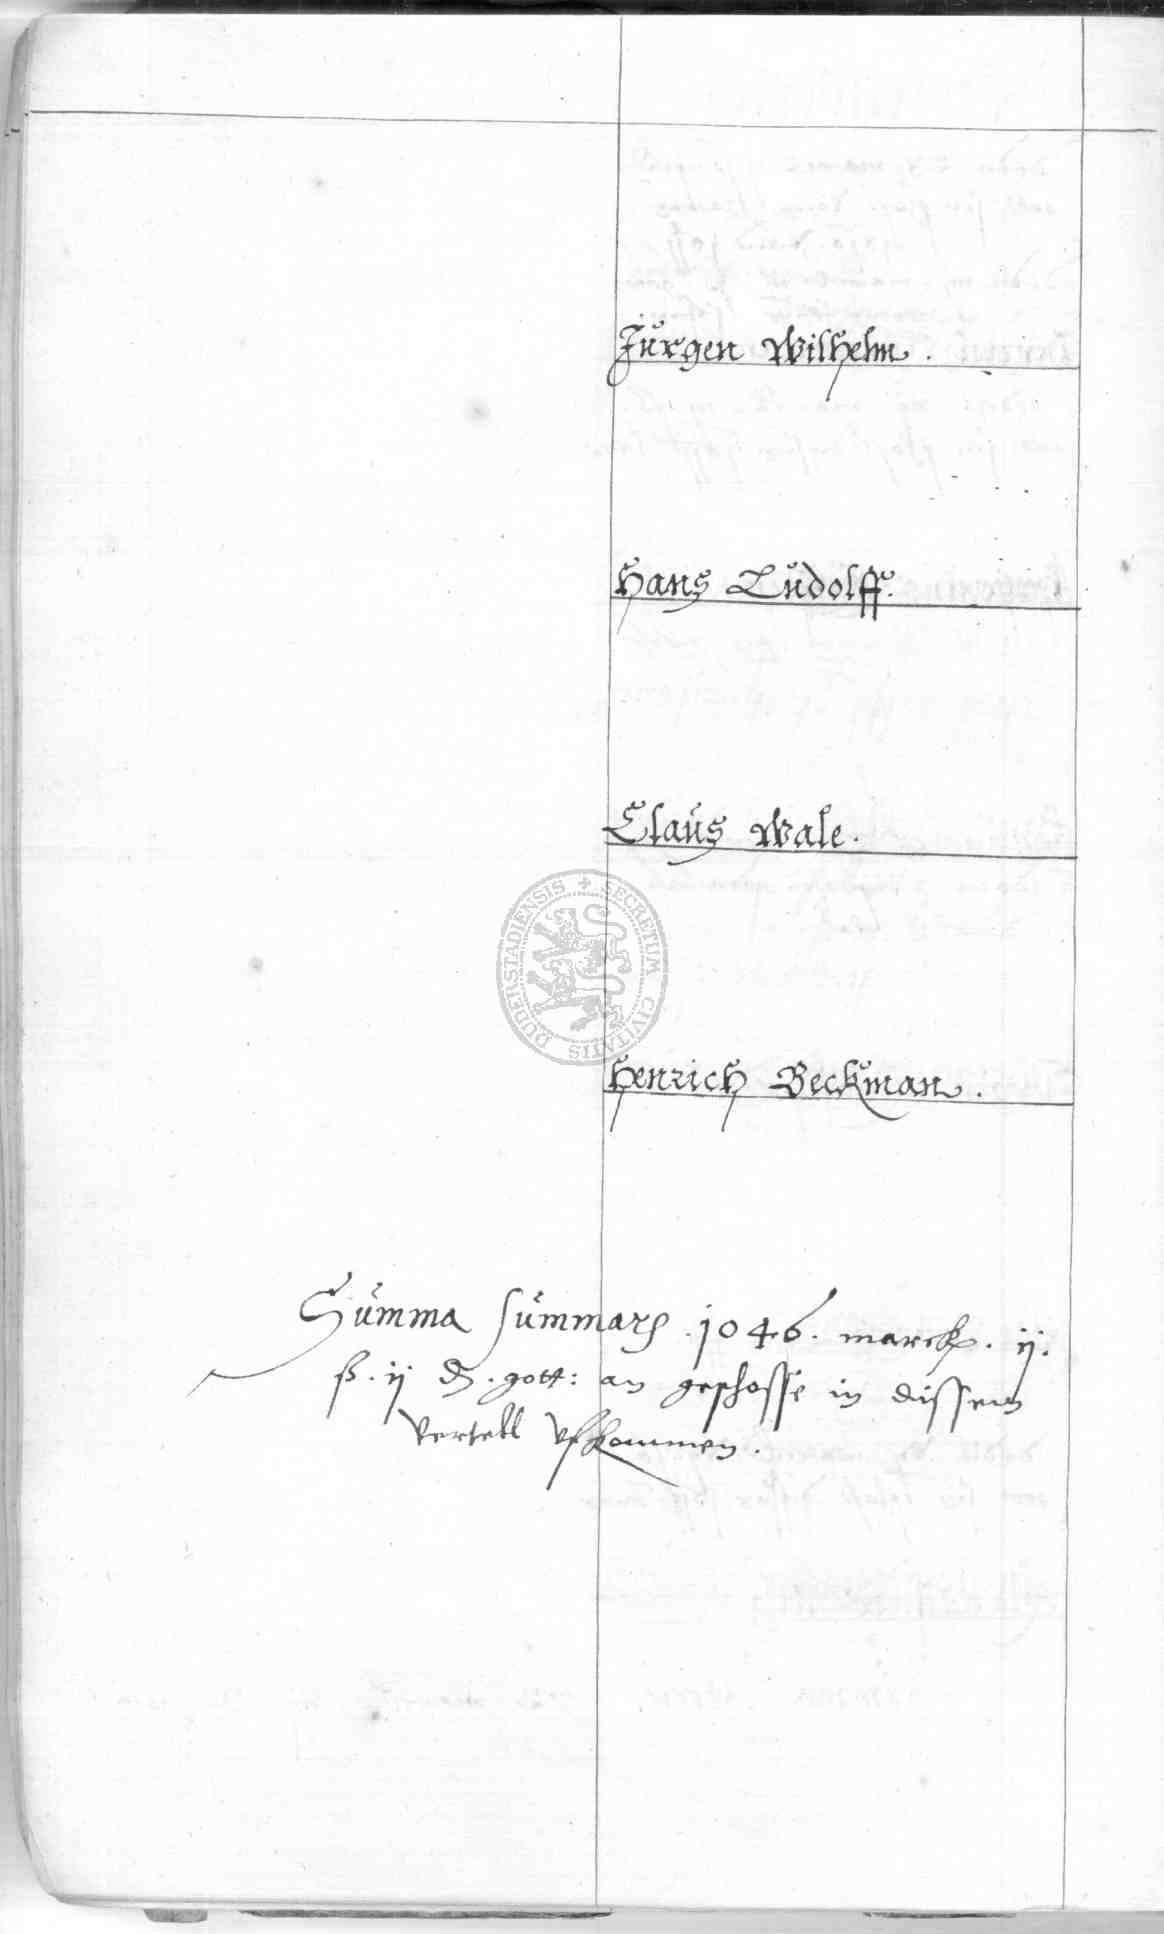 Jürgen Wilhelm.
Hans Ludolff.
Claus Wale.
SECRETUM CIVITATIS DUDERSTADIENSIS
Henrich Beckman.
Summa summarum .1046. marck. ij.
ß. ij ₰. gott: an geschosse in dissem
vertell vfkommen.